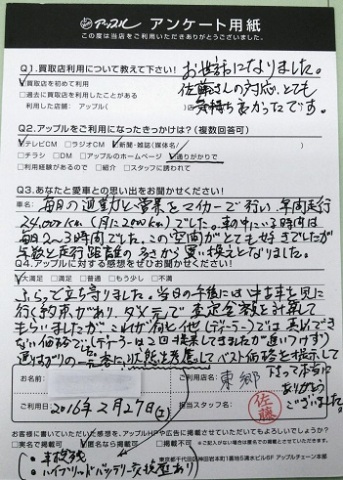 アップル アンケート用紙
この度は当店をご利用いただきありがとうございました。
Q1.買取店利用について教えて下さい!
買取店を初めて利用
過去に買取店を利用したことがある
利用した店舗: アップル(
お世話になりました。
佐藤さんの対応、とても
気持ち良かったです。
Q2.アップルをご利用になったきっかけは?(複数回答可)
テレビCM ラジオCM 新聞・雑誌(媒体名/
チラシ DM アップルのホームページ 通りがかりで
利用経験があるので 紹介 スタッフに誘われて
Q3.あなたと愛車との思い出をお聞かせください!
車名: 毎日の通勤と、営業をマイカーで行い、年間走行
24,000Km(月に2000Km)でした。車の中にいる時間は
毎日2〜3時間でした。この空間がとても好きでしたが
年数と走行距離の多さから買い換えとなりました。
Q4.アップルに対する感想をぜひお聞かせください!
大満足 満足 普通 もう少し 不満
ふらっと立ち寄りました。当日の午後には中古車を見に
行く約束があり、ダメ元で査定金額を計算して
もらいましたが、これが何と他(ディーラー)では真似できない
価格で(ディーラーは2回提案してきましたが追いつけず)
通りがかりの一見客に、状態を考慮してベスト価格を提示して
下さって本当に
ありがとう
ございました。
お名前:
ご利用店名: 東郷
ご利用日: 2016年2月27日(土)
担当スタッフ名: 佐藤
お客様に書いていただいた感想を、アップルHPや広告に掲載させていただいてもよろしいでしょうか?
実名で掲載可 匿名なら掲載可 掲載不可
・車検残
・ハイブリッドバッテリー交換歴あり